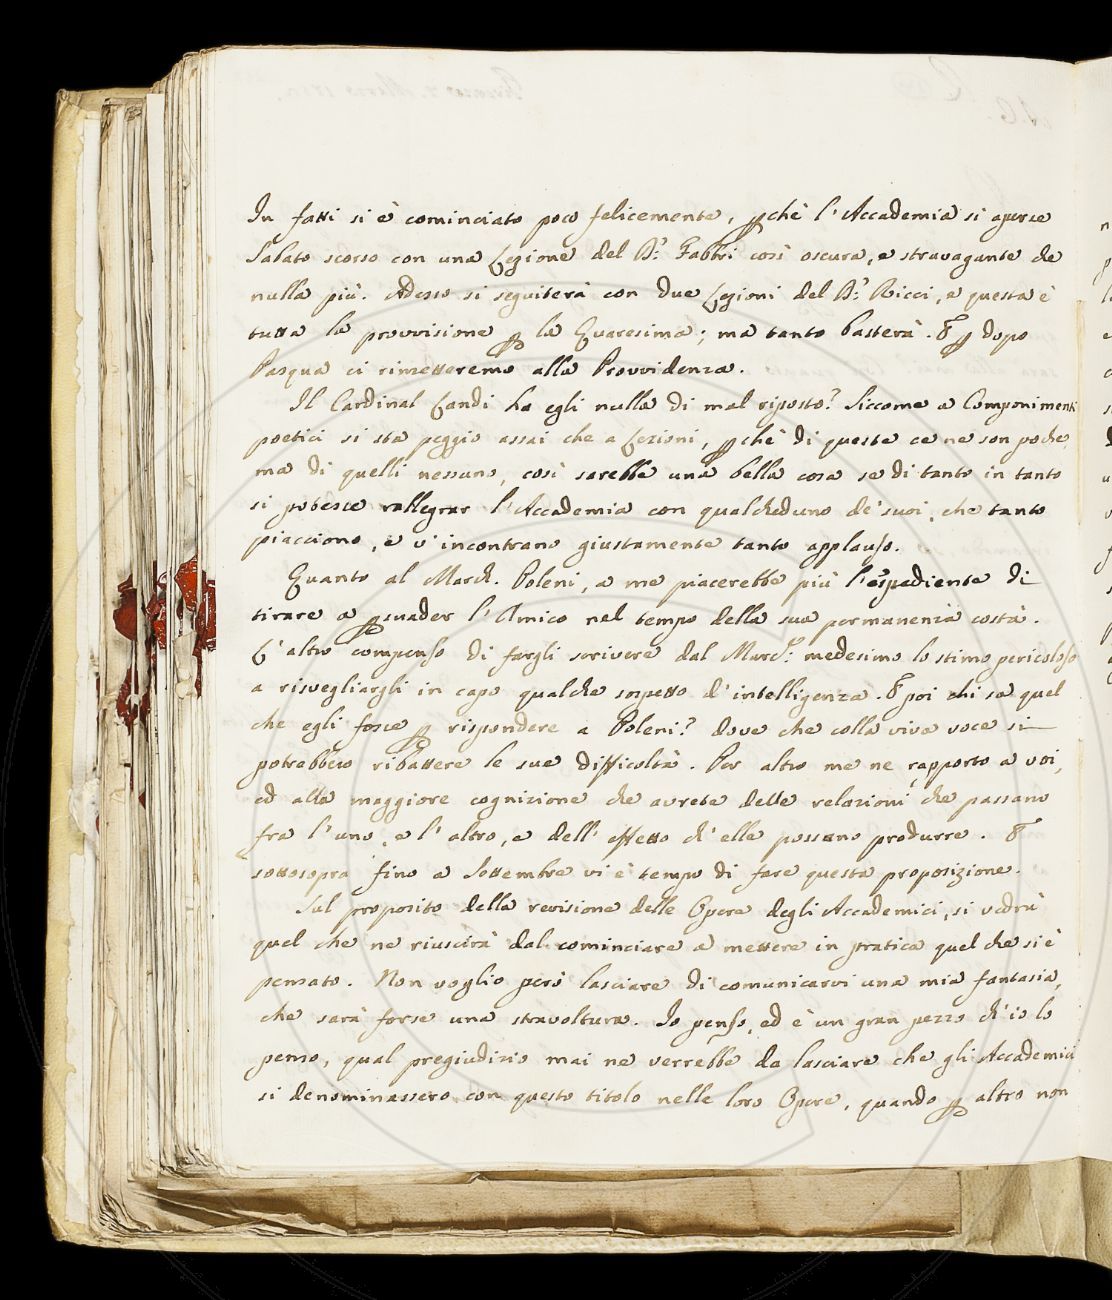 In fatti si è cominciato poco felicemente, pchè l'Accademia si aperse
Sabato scorso con una Lezione del D.r Fabbri così oscura, e stravagante che
nulla più. Adesso si seguiterà con due Lezioni del D.r Ricci, e questa è
tutta la provvisione p la Quaresima; ma tanto basterà. E p dopo
Pasqua ci rimetteremo alla Provvidenza.
Il Cardinal Landi ha egli nulla di mal riposto? Siccome a Componimenti
poetici si sta peggio assai che a Lezioni, pchè di queste ce ne son poche,
ma di quelli nessuno, così sarebbe una bella cosa se di tanto in tanto
si potesse rallegrar l'Accademia con qualcheduno de' suoi, che tanto
piacciono, e v'incontrano giustamente tanto applauso.
Quanto al March. Poleni, a me piacerebbe più l'espediente di
tirare a psuader l'Amico nel tempo della sua permanenza costà.
L'altro compenso di fargli scrivere dal March. medesimo lo stimo pericoloso
a risvegliargli in capo qualche sospetto d'intelligenza. E poi chi sa quel
che egli fosse p rispondere a Poleni? dove che colla viva voce si
potrebbero ribattere le sue difficoltà. Per altro me ne rapporto a voi,
ed alla maggiore cognizione che avrete delle relazioni che passano
fra l'uno, e l'altro, e dell'effetto ch'elle possano produrre. E
sottosopra fino a Settembre vi è tempo di fare questa proposizione.
Sul proposito della revisione delle Opere degli Accademici, si vedrà
quel che ne riuscirà dal cominciare a mettere in pratica quel che si è
pensato. Non voglio però lasciare di comunicarvi una mia fantasia,
che sarà forse una stravoltura. Io penso, ed è un gran pezzo ch'io lo
penso, qual pregiudizio mai ne verrebbe da lasciare che gli Accademici
si denominassero con questo titolo nelle loro Opere, quando p altro non